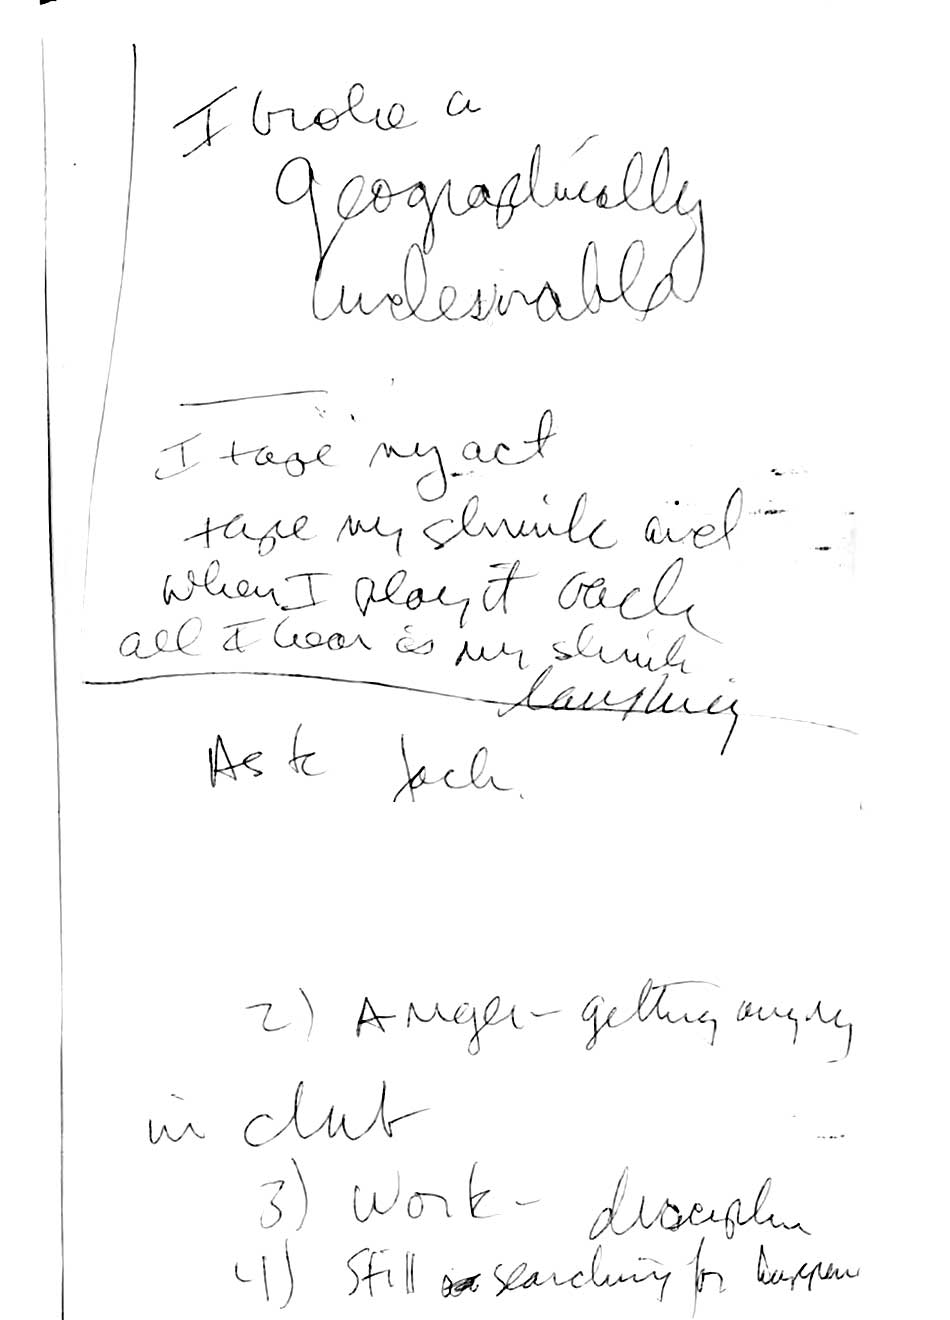 I broke a
geographically
undesirable
I tape my act
tape my shrink and
when I play it back
all I hear is my shrink
laughing
Ask Jack.
2) Anger - getting angry
in club
3) Work - discipline
4) Still searching for